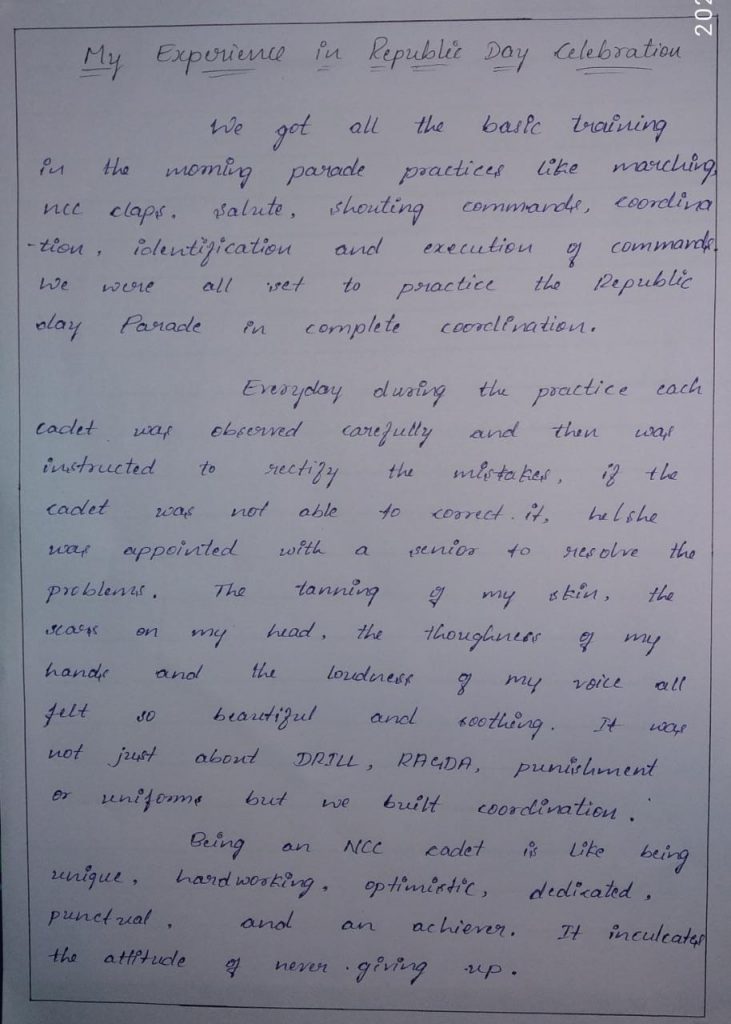 202
My Experience in Republic Day Celebration
We got all the basic training
in the morning parade practices like marching,
ncc claps, salute, shouting commands, coordina
-tion, identification and execution of commands.
We were all set to practice the Republic
day Parade in complete coordination.
Everyday during the practice each
cadet was observed carefully and then was
instructed to rectify the mistakes, if the
cadet was not able to correct it, he/she
was appointed with a senior to resolve the
problems. The tanning of my skin, the
scars on my head, the thoughness of my
hands and the loudness of my voice all
felt so beautiful and soothing. It was
not just about DRILL, RAGDA, punishment
or uniforms but we built coordination.
Being an NCC cadet is like being
unique, hardworking, optimistic, dedicated,
punctual, and an achiever. It inculcates
the attitude of never giving up.